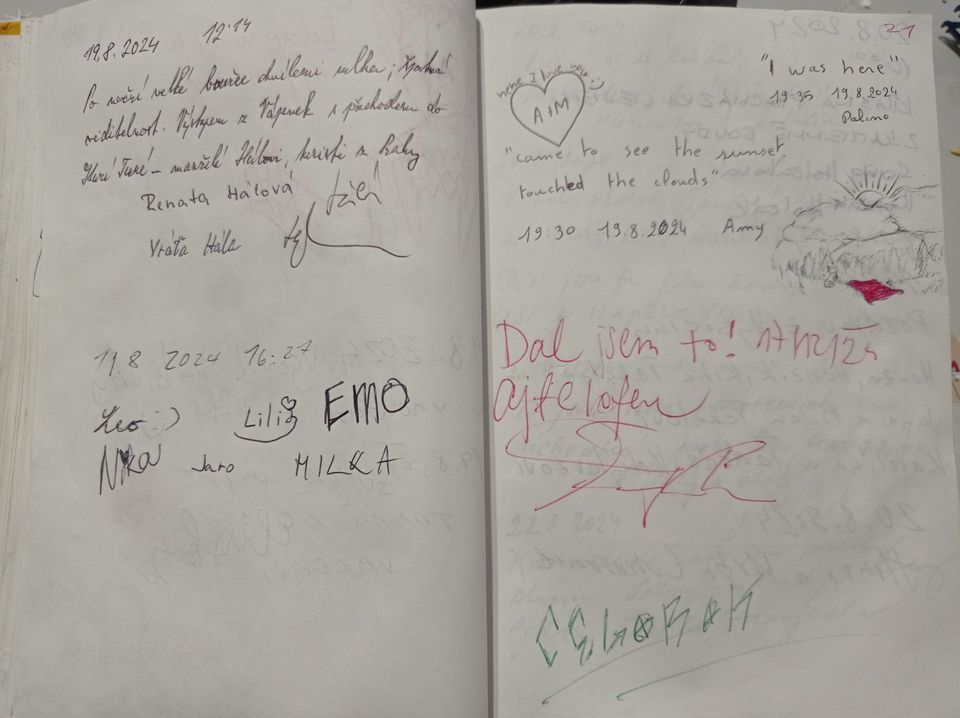 19.8.2024 12:14
Po noční velké bouřce chvílemi mlha, žádná
viditelnost. Výstupem z Vápenek s přechodem do
Staré Turé – manželé Hálovi, turisté z Prahy
Renata Hálová
Vráťa Hála
19.8 2024 16:27
Leo :) Lili EMO
Nika Jaro MILKA
21
hehe I love you :)
A+M
"I was here"
19:35 19.8.2024
Palino
"came to see the sunset,
touched the clouds"
19:30 19.8.2024 Amy
Dal jsem to!
CELOROK